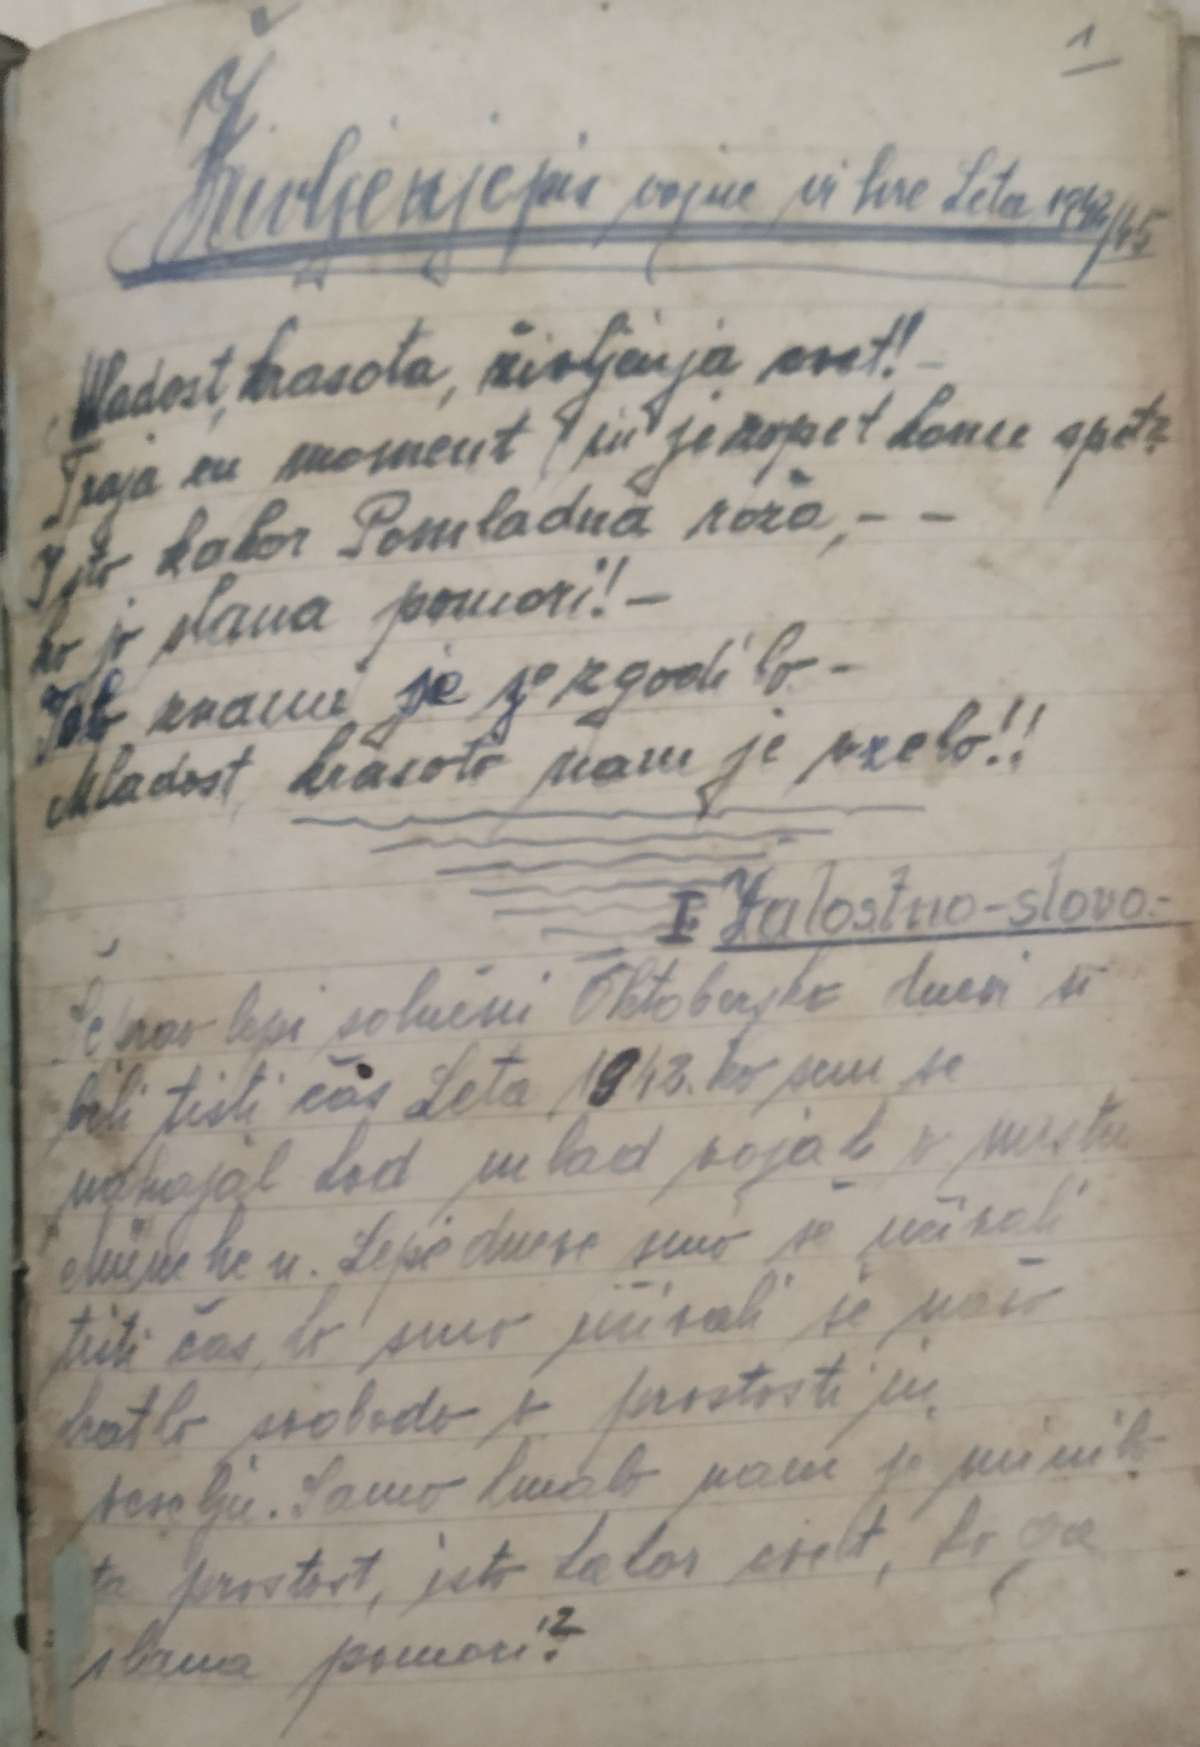 1
Življenjepis vojne vihre Leta 1942/45
Mladost, krasota, življenja cvet! -
Traja en moment in je zopet konec spet
Isto kakor Pomladna roža, - -
ko jo slana pomori! -
Tako znami je se zgodilo -
Mladost krasoto nam je vzelo!!
I. Žalostno-slovo.-
Še prav lepi solnčni Oktobersko dnevi so
bili tisti čas Leta 1943. ko sem se
nahajal kod mlad vojak v mestu
München. Lepe dneve smo še uživali
tisti čas, ko smo uživali še našo
kratko svobodo v prostosti in
veselju. Samo kmalo nam je minilo
ta prostost, isto kakor cvet, ko ga
slana pomori?